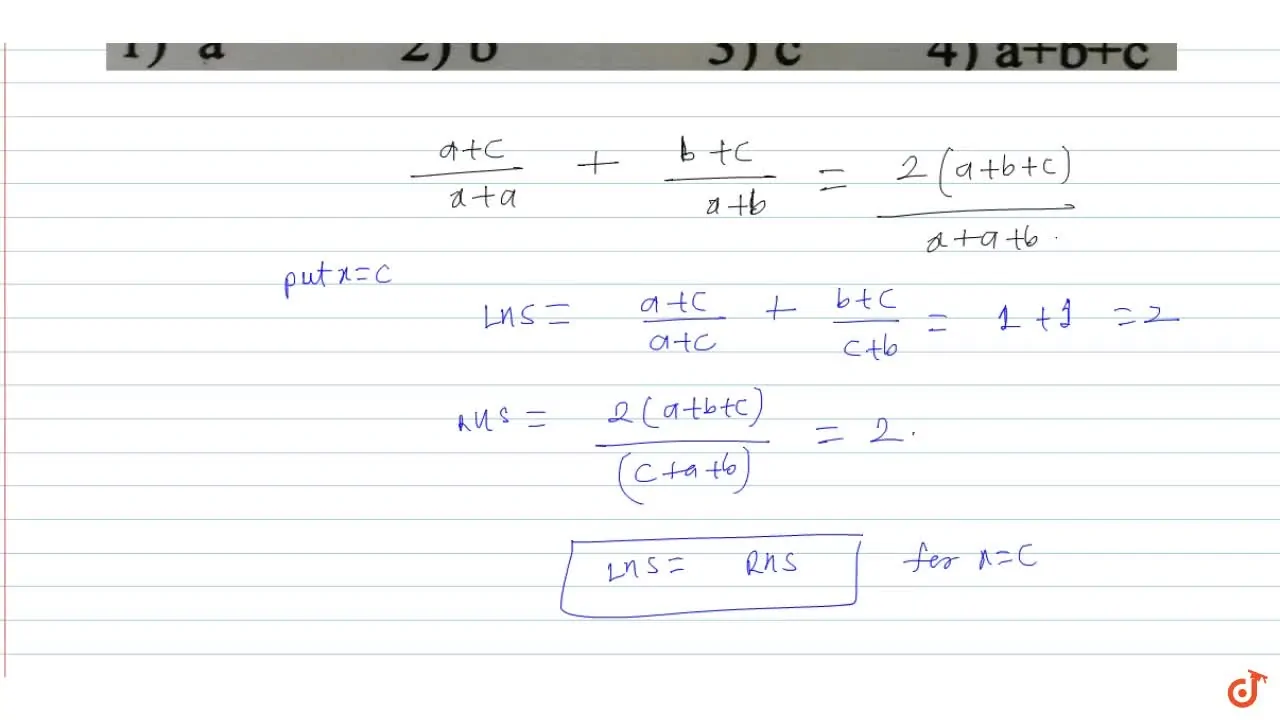 1) a 2) b 3) c 4) a+b+c
a+c/x+a + b+c/x+b = 2(a+b+c)/x+a+b.
put x=c
LHS = a+c/a+c + b+c/c+b = 1+1 = 2
RHS = 2(a+b+c)/(c+a+b) = 2.
LHS = RHS for x=c